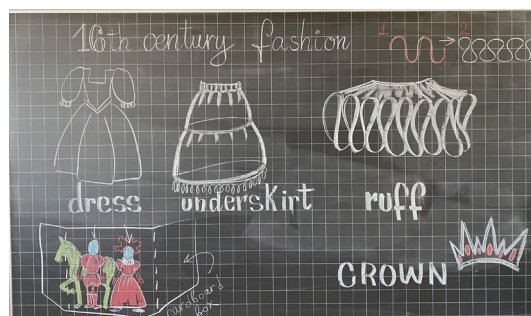 16th century fashion
1 2
dress
underskirt
ruff
CROWN
cardboard
box